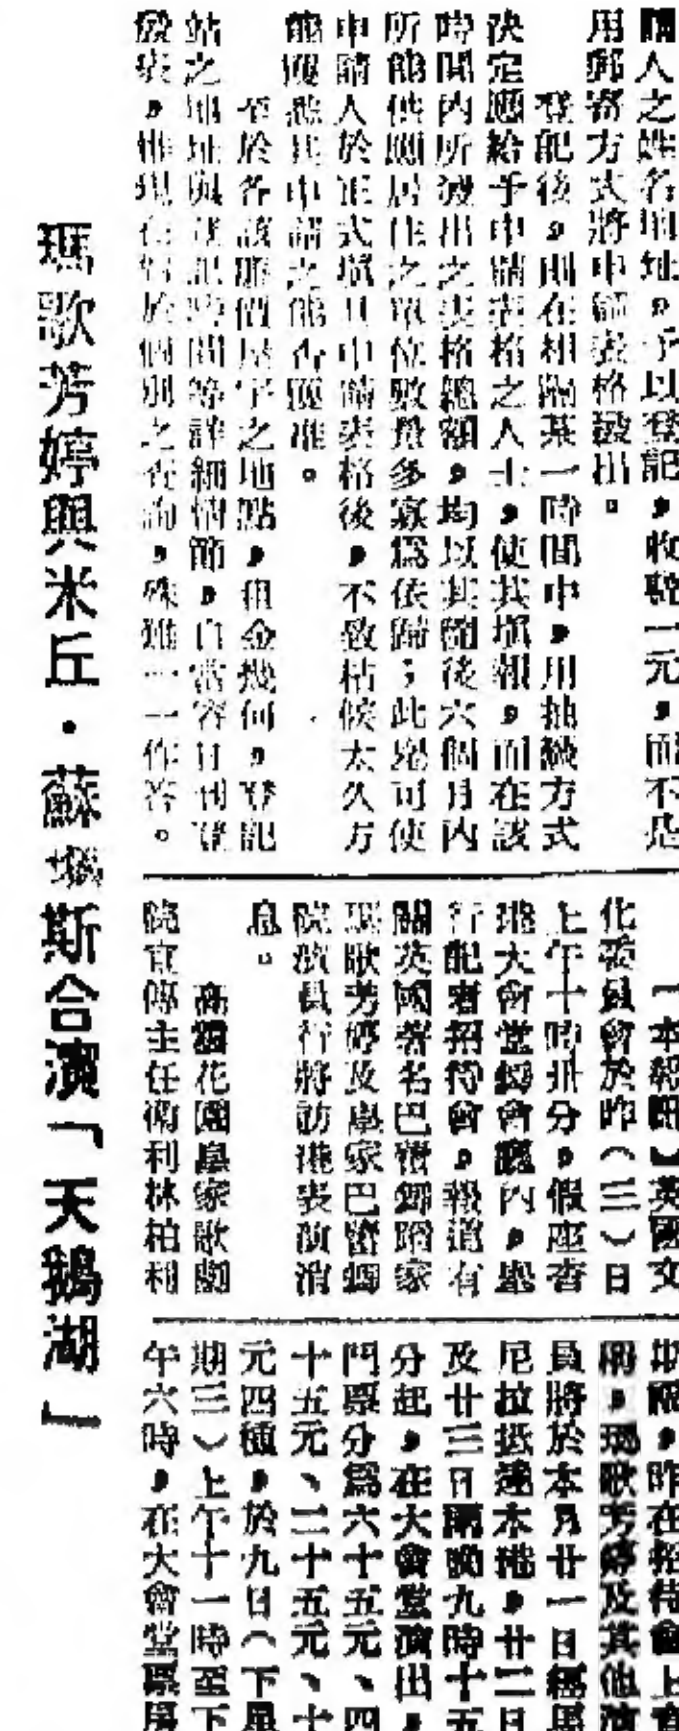 請人之姓名地址，予以登記，收駐一元，而不是
用郵寄方式將申請表格發出。
登記後，則在相隔某一時間中，用抽籤方式
決定應給予申請表格之人士，使其塡報，而在該
時間內所發出之表格總額，均以其隨後六個月內
所能供應居住之單位數量多寡爲依歸；此舉可使
申請人於正式塡具申請表格後，不致枯候太久方
能獲悉其申請之能否獲准。
至於各該廉價屋宇之地點，租金幾何，登記
站之地址與登記時間等詳細情節，自當容日刊登
發表，惟現在對於個別之查詢，殊難一一作答。
瑪歌芳婷與米丘・蘇斯合演「天鵝湖」
【本報訊】英國文
化委員會於昨（三）日
上午十時卅分，假座香
港大會堂餐會廳內，舉
行記者招待會，報道有
關英國著名巴蕾舞蹈家
瑪歌芳婷及皇家巴蕾舞
院演員行將訪港表演消
息。
高雅花園皇家歌劇
院宣傳主任衛利林柏利
，昨在招待會上宣
，瑪歌芳婷及其他演
員將於本月廿一日經馬
尼拉抵達本港，廿二日
及廿三日兩晚九時十五
分起，在大會堂演出，
門票分爲六十五元、四
十五元、二十五元、十
元四種，於九日（下星
期三）上午十一時至下
午六時，在大會堂票房